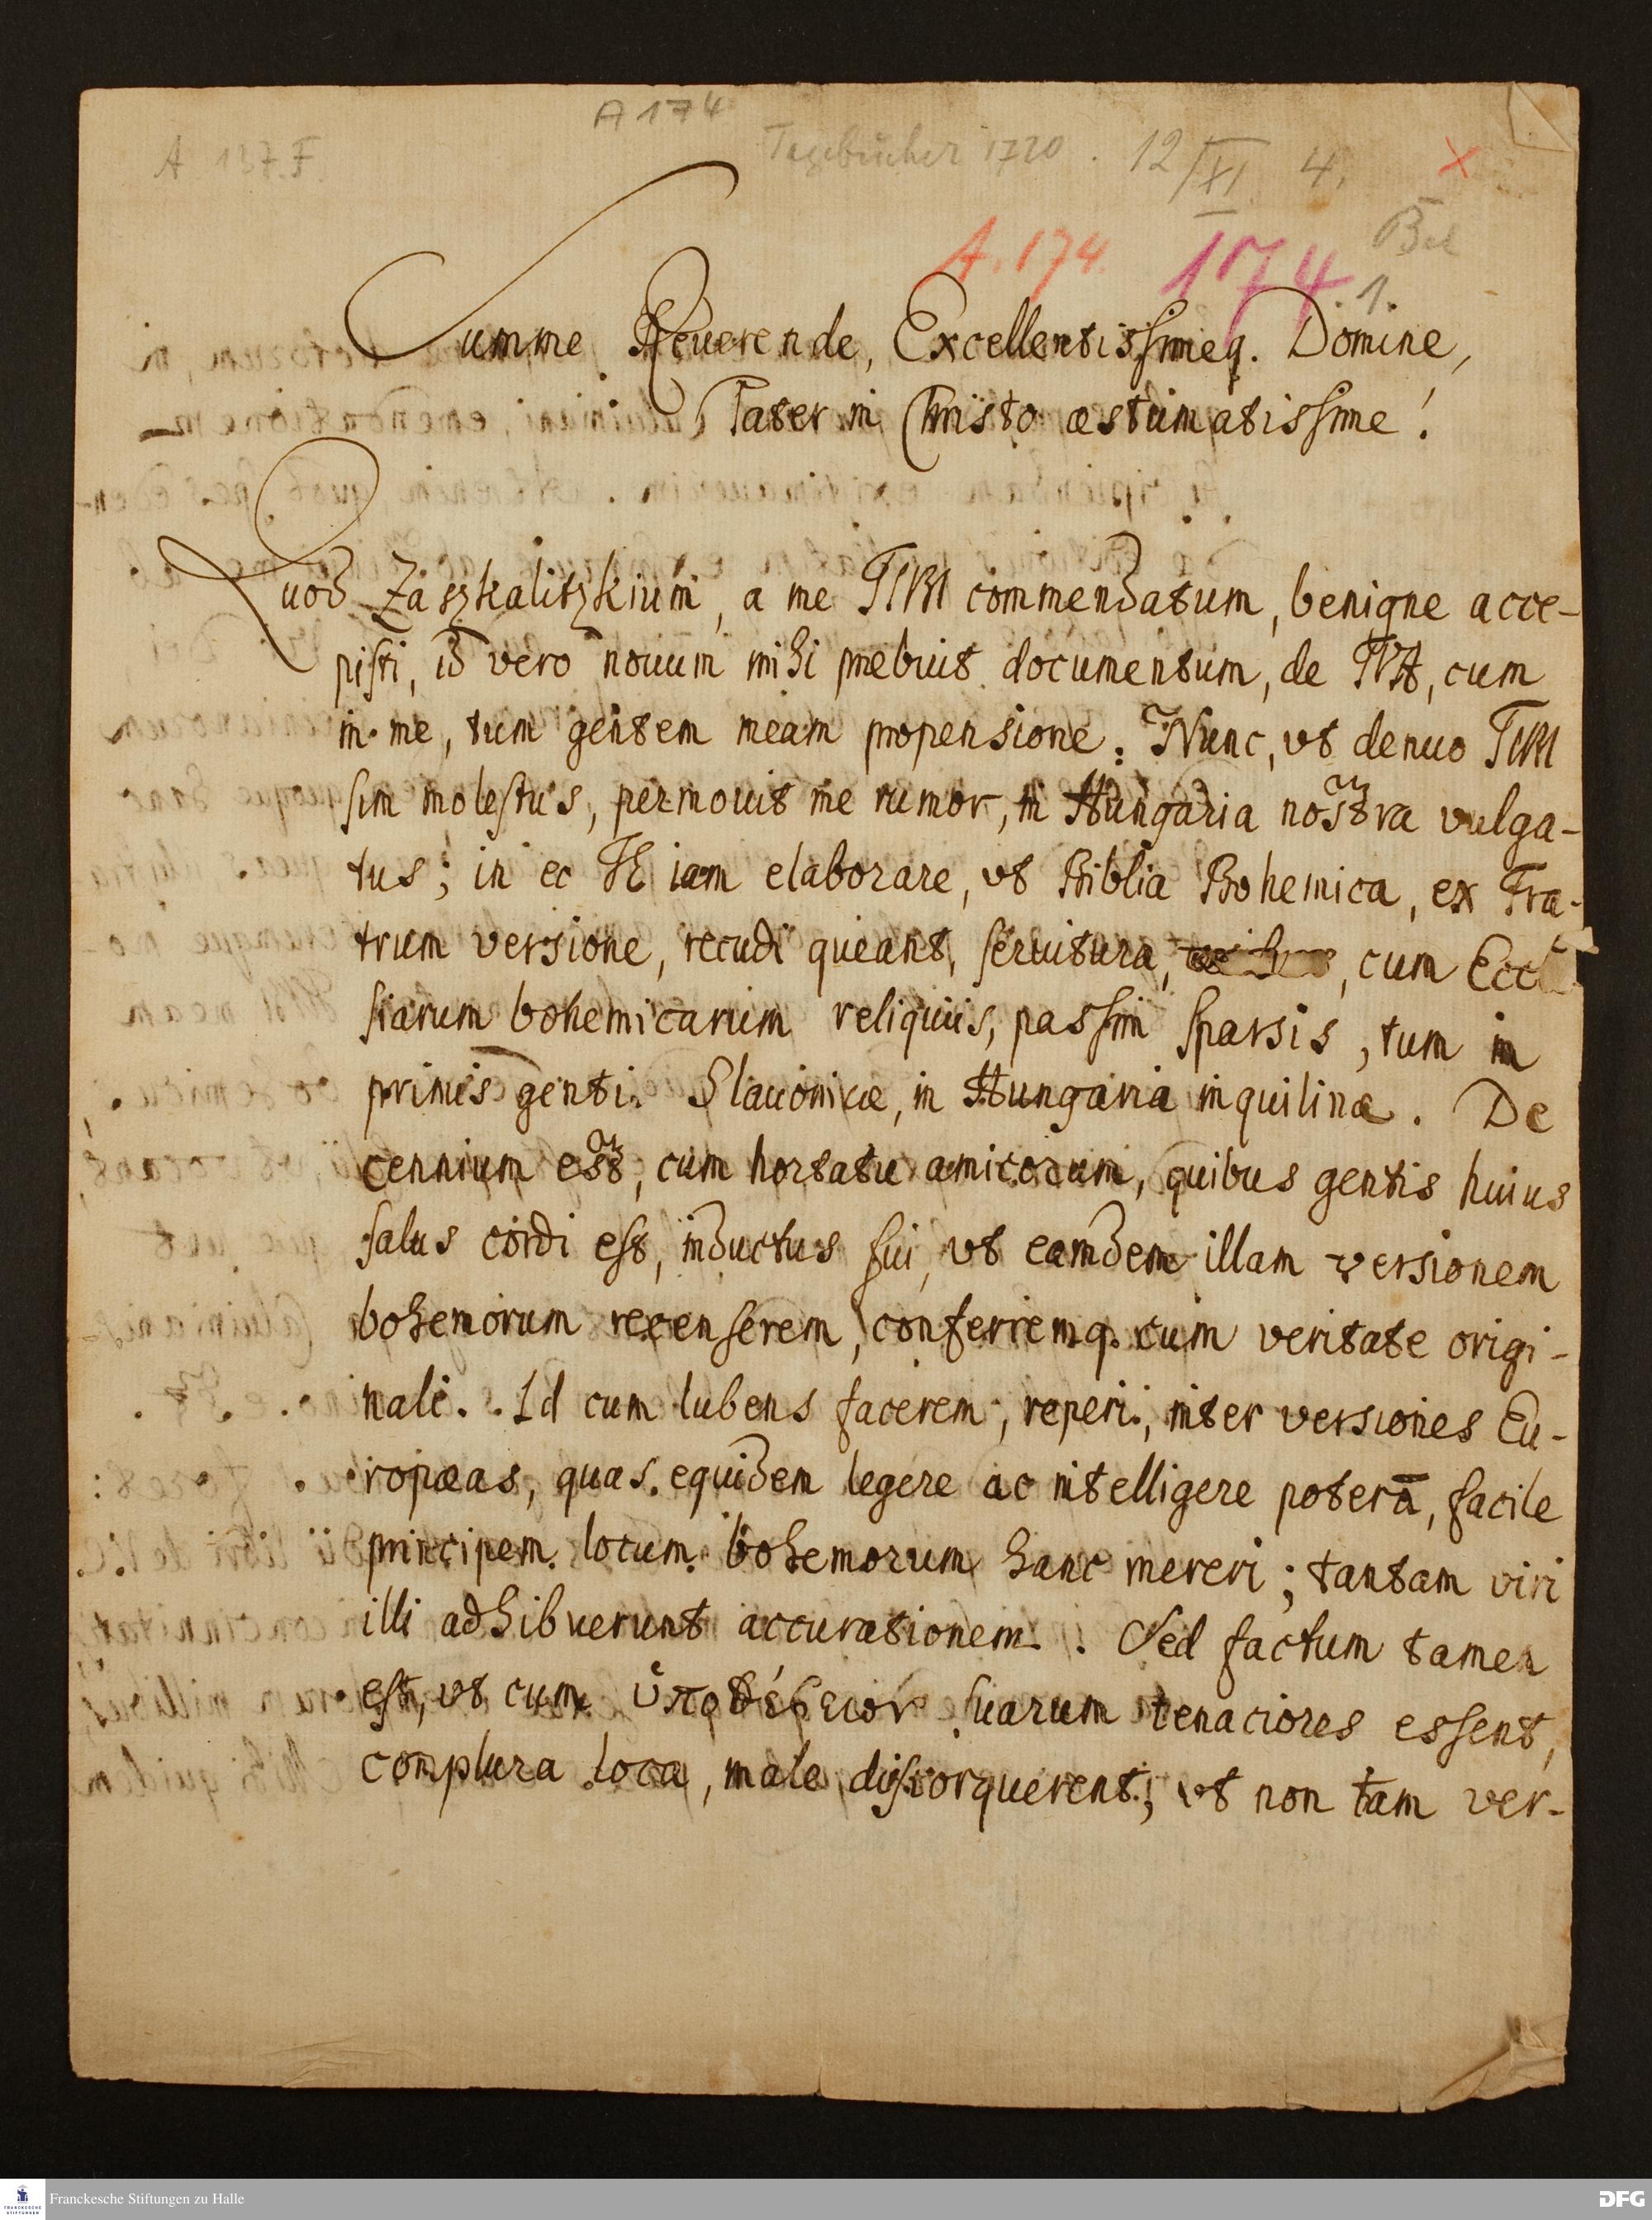 A 174
A 137.F.
Tagebücher 1720. 12/XI 4.
Bel
A. 174. 174 1.
Summe Reuerende, Excellentissimeq. Domine,
Pater in Christo æstumatissime!
Quod Zaszkalitzkium, a me commendatum, benigne acce-
pisti, id vero nouum mihi præbuit documentum, de cum
in me, tum gentem meam propensione. Nunc, vt denuo
sim molestus, permouit me rumor, in Hungaria nostra vulga-
tus; in eo TE iam elaborare, vt Biblia Bohemica, ex Fra-
trum versione, recudi queant, seruitura, cum Eccle
siarum bohemicarum reliquiis, passim sparsis, tum in
primis genti Slauonicæ, in Hungaria inquilinæ. De
cennium est, cum hortatu amicorum, quibus gentis huius
salus cordi est, inductus fui, vt eamdem illam versionem
bohemorum recenserem, conferremq. cum veritate origi-
nali. Id cum lubens facerem, reperi, inter versiones Eu-
ropæas, quas equidem legere ac intelligere poterā, facile
principem locum bohemorum hanc mereri; tantam viri
illi adhibuerunt accurationem. Sed factum tamen
est, vt cum ὑποθέσεων suarum tenaciores essent,
complura loca, male distorquerent; vt non tam ver-
Franckesche Stiftungen zu Halle
DFG